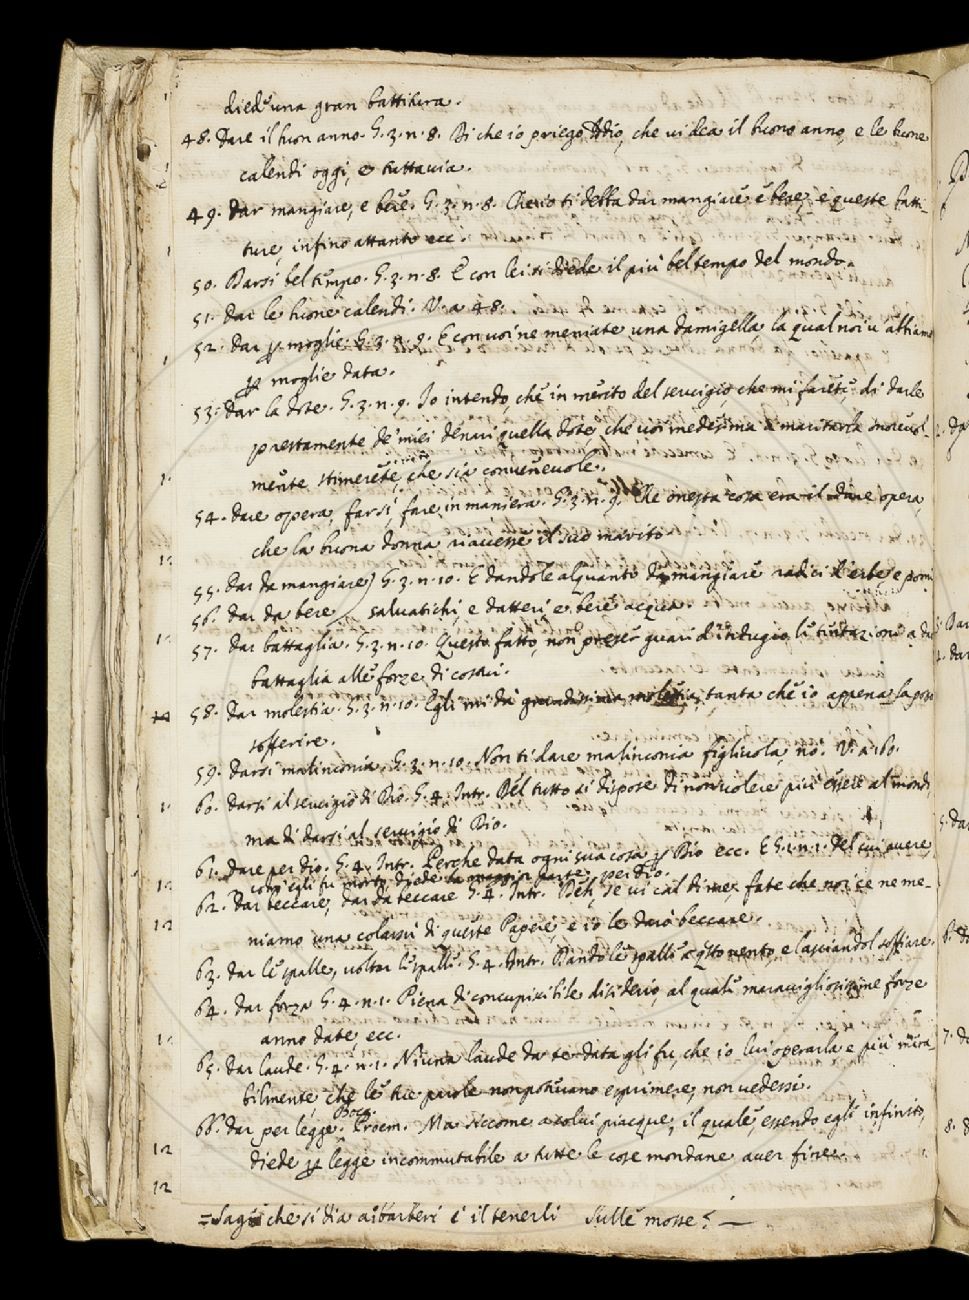 diede una gran battitura.
48. Dare il buon anno. G.3.n.8. Di che io priego Iddio, che vi dea il buono anno, e le buone
calendi oggi, e tuttavia.
49. Dar mangiare, e bere. G.3.n.8. Che io ti debba dar mangiare e bere, e queste batti-
ture, infino attanto ecc.
50. Darsi bel tempo. G.3.n.8. E con lei si diede il più bel tempo del mondo.
51. Dar le buone calendi. V. a 48.
52. Dar ꝑ moglie. G.3.n.9. E con voi ne meniate una damigella, la qual noi v'abbiamo
ꝑ moglie data.
53. Dar la dote. G.3.n.9. Io intendo, che in merito del servigio, che mi farete di darle
prestamente de' miei denari quella dote, che voi medesima a maritarla onorevol-
mente stimerete, che sia convenevole.
54. Dare opera, farsi, fare in maniera. G.3.n.9. Che onesta cosa era il dare opera,
che la buona donna riavesse il suo marito
55. Dar da mangiare) G.3.n.10. E dandole alquanto da mangiare radici d'erbe, e pomi
56. Dar da bere) salvatichi, e datteri, e bere acqua.
57. Dar battaglia. G.3.n.10. Questo fatto, non preser guari d'indugio le tentazioni a dar
battaglia alle forze di costui.
58. Dar molestia. G.3.n.10. Egli mi dà grandissima molestia, tanta che io appena la posso
sofferire.
59. Darsi malinconia. G.3.n.10. Non ti dare malinconia figliuola, no. V. a 160.
60. Darsi al servigio di Dio. G.4. Intr. Del tutto si dispose di non volere più essere al mondo,
ma di darsi al servigio di Dio.
61. Dare per dio. G.4. Intr. Perche data ogni sua cosa ꝑ Dio ecc. E G.1.n.1. del cui avere,
com' egli fu morto, diede la maggior parte per Dio.
62. Dar beccare, dar da beccare G.4. Intr. Deh, se vi cal di me, fate che noi ce ne me-
niamo una colassù di queste Papere, e io le darò beccare.
63. Dar le spalle, voltar le spalle. G.4. Intr. Dando le spalle a qsto vento, e lasciandol soffiare.
64. Dar forza G.4.n.1. Piena di concupiscibile disiderio, al quale maravigliosissime forze
anno date, ecc.
65. Dar laude. G.4.n.1. Niuna laude da te data gli fu, che io lui operarla e più mira-
bilmente, che le tue parole non potevano esprimere, non vedessi.
66. Dar per legge. Bocc. Proem. Ma siccome a colui piacque, il quale, essendo egli infinito,
diede ꝑ legge incommutabile a tutte le cose mondane aver fine.
che si dia a' barberi è il tenerli sulle mosse